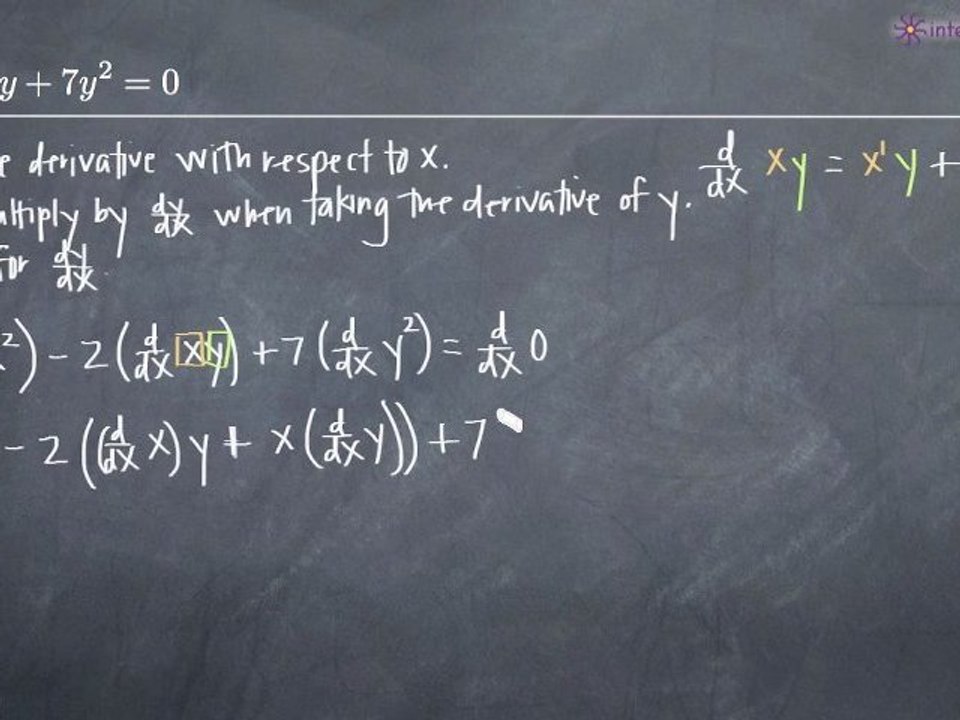 inte
y + 7y² = 0
e derivative with respect to x.
d/dx xy = x' y +
ultiply by dy/dx when taking the derivative of y.
for dy/dx.
x²) - 2 (d/dx xy) + 7 (d/dx y²) = d/dx 0
- 2 ((d/dx x) y + x (d/dx y)) + 7